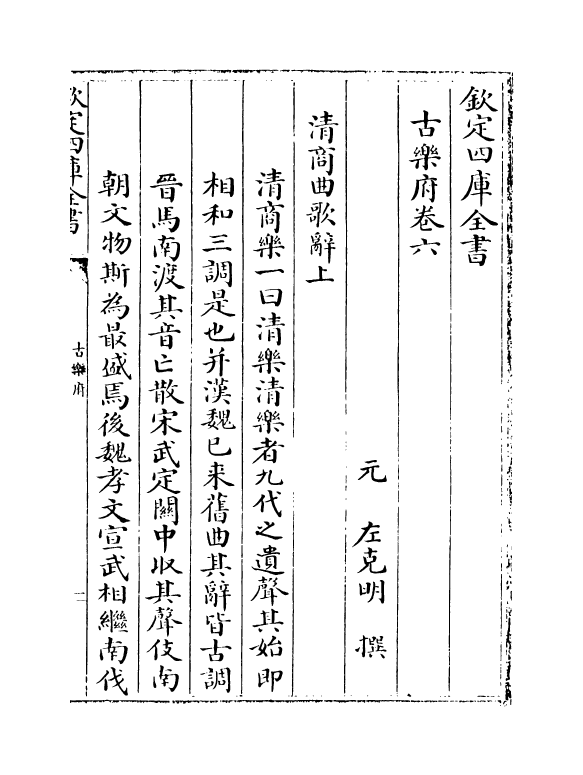 欽定四庫全書
古樂府卷六
元 左克明 撰
清商曲歌辭上
清商樂一曰清樂清樂者九代之遺聲其始即
相和三調是也并漢魏已来舊曲其辭皆古調
晉馬南渡其音亡散宋武定關中収其聲伎南
朝文物斯為最盛焉後魏孝文宣武相繼南伐
欽定四庫全書
古樂府
一